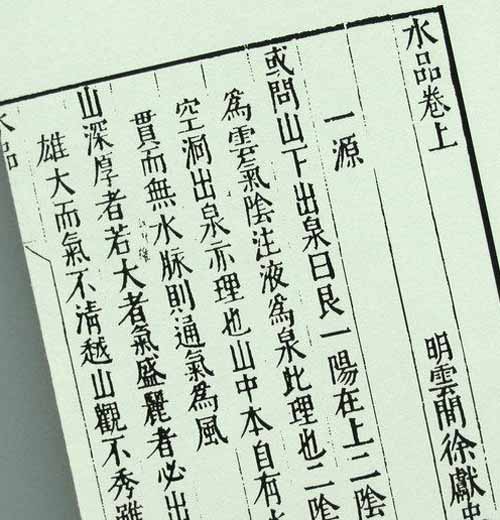 水品卷上
明雲間徐獻
一源
或問山下出泉曰艮一陽在上二陰
爲雲氣陰注液爲泉此理也二陰
空洞出泉亦理也山中本自有
貫而無水脉則通氣爲風
山深厚者若大者氣盛麗者必出
雄大而氣不清越山觀不秀雖
水品